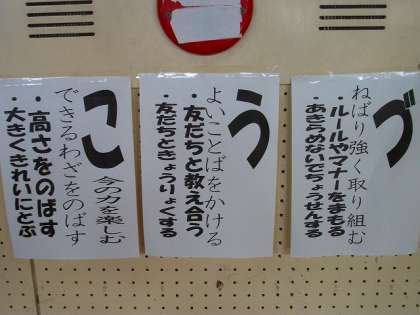 づ
ねばり強く取り組む
・ルールやマナーをまもる
・あきらめないでちょうせんする
う
よいことばをかける
・友だちと教え合う
・友だちときょうりょくする
こ
今の力を楽しむ
できるわざをのばす
・高さをのばす
・大きくきれいにとぶ